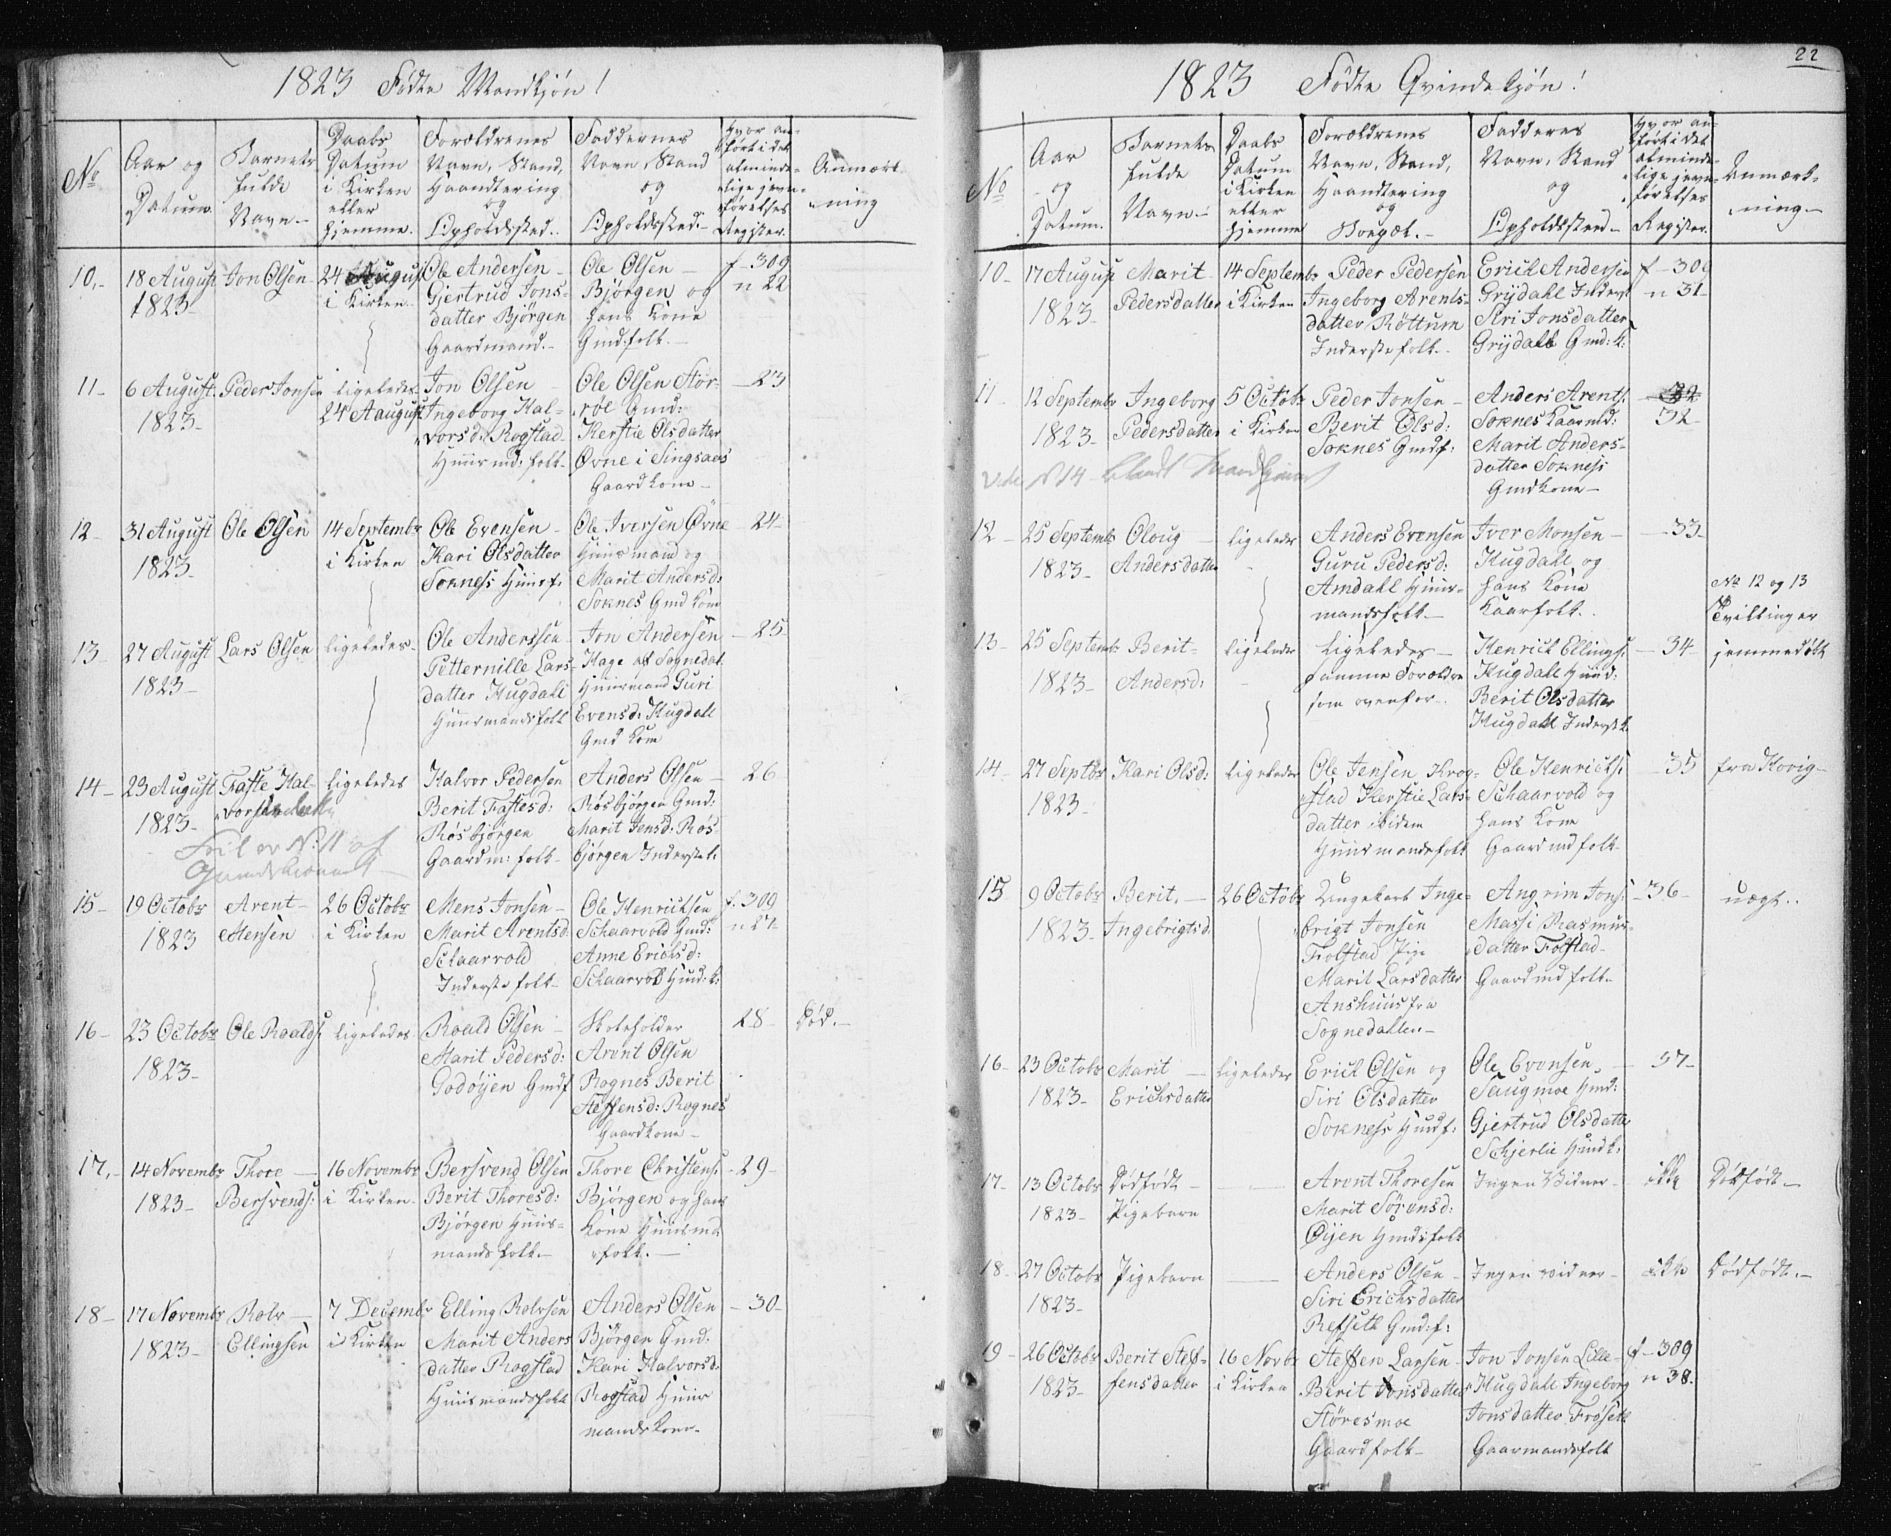 1823 Fødte Mandkjøn!
No
Aar og
Datum.
Barnets
fulde
Navn.-
Daabs
Datum
i Kirken
eller
hjemme.
Forældrenes
Navn, Stand,
Haandtering
og
Opholdssted.
Faddernes
Navn, Stand
og
Opholdssted.-
Hvor an-
ført i det
alminde-
lige jevn-
førelses
Register.
Anmærk-
ning
10.-
18 August
1823-
Jon Olsen
24 August
i Kirken
Ole Andersen -
Gjertrud Jons-
datter Bjørgen
Gaardmand.-
Ole Olsen -
Bjørgen og
hans Kone
Gmdfolk.-
f-309
n 22
11-
6 August.
1823-
Peder Jonsen
ligeledes
24 August
Jon Olsen -
Ingeborg Hal-
vorsd: Rogstad
Huusmd: folk-
Ole Olsen Stør-
røl Gmd:
Kerstie Olsdatter
Øvne i Singsaas
Gaardkone-
-23
12-
31 August
1823-
Ole Olsen
14 Septembr
i Kirken
Ole Evensen -
Kari Olsdatter
Soknes Huusf:
Ole Iversen Øvne
Huusmand og
Marit Andersd:
Soknes Gmd Kone
- 24-
13-
27 August
1823-
Lars Olsen
ligeledes-
Ole Anderssen -
Petternille Lars-
datter Hugdahl
Huusmandsfolk
Jon Andersen
Hage af Sognedal.
Huusmand Guri
Evensd: Hugdahl
Gmd Kone
- 25-
14-
23 August
1823-
Faste Hal-
vorsen
ligeledes
Halvor Pedersen
Berit Fastesd:
Røsbjørgen
Gaardm: folk-
Anders Olsen -
Røsbjørgen Gmd:
Marit Jensd: Røs-
bjørgen Inderstek:
26-
15-
19 Octobr
1823
Arent-
Mensen
26 Octobr
i Kirken
Mens Jonsen -
Marit Arentsd:
Schaarvold
Inderste folk-
Ole Henricksen
Schaarvold Gmd:
Anne Erichsd:
Schaarvold Huusd:k:
f. 309
n 27-
16-
23 Octobr
1823-
Ole Roalds:
ligeledes
Roald Olsen -
Marit Pedersd:
Godøyen Gmdf
Skoleholder
Arent Olsen
Rognes Berit
Steffensd: Rognes
Gaardkone-
28-
Død.-
17.-
14 Novembr
1823-
Thore -
Bersvends:
16 Novembr
i Kirken-
Bersvend Olsen
Berit Thoresd:
Bjørgen Huus-
mandsfolk-
Thore Christens:
Bjørgen og hans
Kone Huusmd
folk.-
- 29-
18-
17 Novembr
1823-
Rolv -
Ellingsen
7 Decembr
i Kirken
Elling Rolvsen
Marit Anders
datter Rogstad
Huusmandsfolk
Anders Olsen
Bjørgen Gmd:
Kari Halvorsd:
Rogstad Huus
mandskone-
- 30-
22
1823 Fødte Qvindekjøn!
No
Aar
og
Datum.
Barnets
fulde
Navn.-
Daabs
Datum
i Kirken
eller
hjemme
Forældrenes
Navn, Stand,
Haandtering
og
Boepæl.-
Fadderes
Navn, Stand
og
Opholdssted-
Hvor an-
ført i det
alminde-
lige jevn-
førelses
Register.
Anmærk-
ning-
10-
17 August
1823-
Marit-
Pedersdatter
14 Septembr
i Kirken
Peder Pedersen
Ingeborg Arents-
datter Røttum
Inderstefolk.
Erich Andersen
Grytdahl Inderst
Siri Jonsdatter
Grytdahl Gmd:k:
f-309
n 31-
11
12 Septembr
1823-
Ingeborg
Pedersdatter
5 Octobr
i Kirken
Peder Jonsen -
Berit Olsd:
Soknes Gmdf:
Anders Arents:
Soknes Kaarmd:
Marit Anders-
datter Soknes
Gmdkone-
32
vide N 14 blandt Mandkjønnet
12-
25 Septembr
1823-
Oloug -
Andersdatter
ligeledes
Anders Evensen
Guru Pedersd:
Amdahl Huus-
mandsfolk-
Iver Monsen -
Hugdahl og
hans Kone
Kaarfolk.
- 33-
No 12 og 13
Tvillinger
hjemmedøbt
13-
25 Septembr
1823-
Berit-
Andersd:
ligeledes
Ligeledes-
samme Forældre
som ovenfor-.
Henrich Ellings:
Hugdahl Huusd:
Berit Olsdatter
Hugdahl Inderstek
- 34-
14-
27 Septbr
1823-
Kari Olsd:
ligeledes
Ole Jensen Krog-
stad Kerstie Lars-
datter ibidem
Huusmandsfolk
Ole Henricks:
Schaarvold og
hans Kone
Gaardmdfolk
-35
fra Horrig-
15
9 Octobr
1823-
Berit.-
Ingebrigtsd:
26 Octobr
Ungekarl Inge-
brigt Jonsen
Folstad Pige
Marit Larsdatter
Anshuus fra
Sognedalen-
Angrim Jons:
Massi Rasmus-
datter Folstad-
Gaardmdfolk-
-36-
uægt..
16-
23 Octobr
1823-
Marit -
Erichsdatter
ligeledes
Erich Olsen og
Siri Olsdatter
Soknes Huusf:
Ole Evensen -
Saugmoe Hmd:
Gjertrud Olsdatter
Schjerlie Huusdk:
- 37-
17-
13 Octobr
1823-
Dødfødt -
Pigebarn
Arent Thoresen
Marit Sørensd:
Øijen Hmdsfolk
Ingen Vidner-
ikke
Dødfødt-
18-
27 Octobr
1823-
Pigebarn
Anders Olsen -
Siri Erichsdatter
Refseth Gmd:f:
Ingen vidner-
ikke
Dødfødt.-
19-
26 Octobr
1823-
Berit Stef-
fensdatter
16 Novbr
i Kirken
Steffen Larsen
Berit Jonsdatter
Støresmoe
Gaardfolk-
Jon Jonsen Lille-
Hugdahl Ingeborg
Jonsdatter Frøseth
Gaarmandsfolk
f-309
n 38.